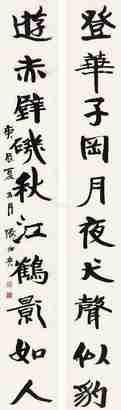 登華子岡月夜犬聲似豹
遊赤壁磯秋江鶴影如人
庚辰夏五月